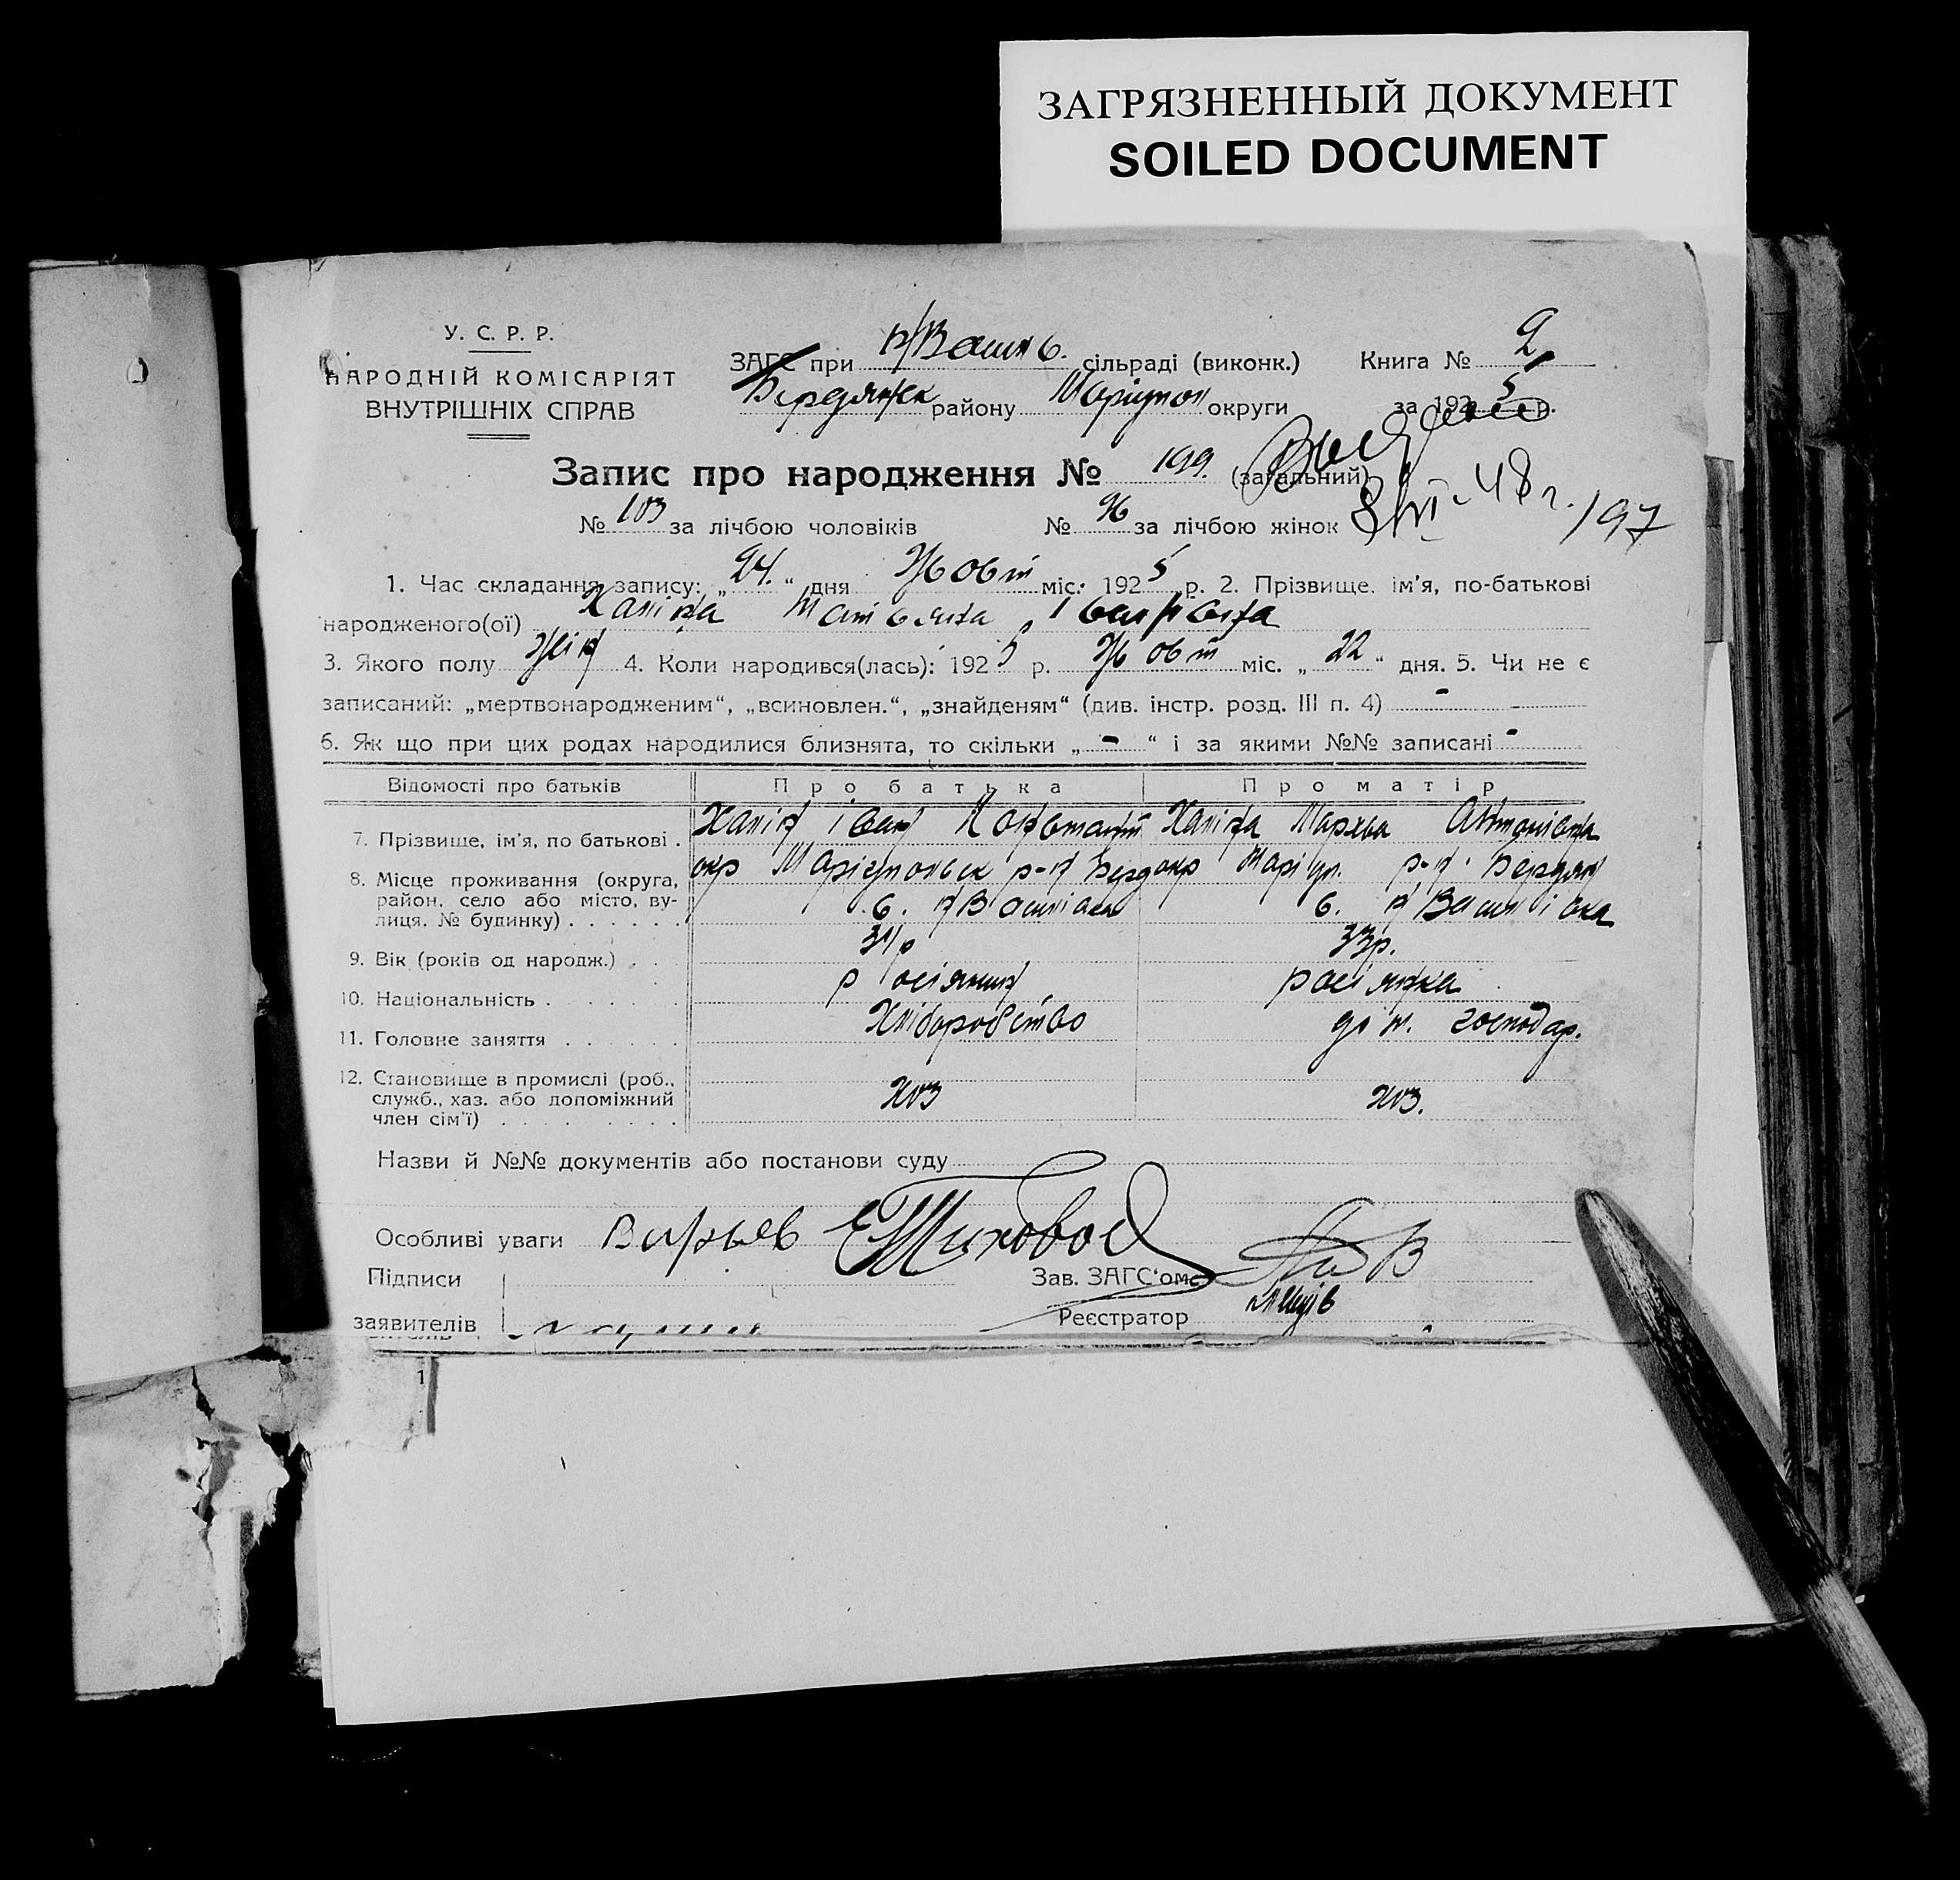 ЗАГРЯЗНЕННЫЙ ДОКУМЕНТ
SOILED DOCUMENT
У. С. Р. Р.
НАРОДНІЙ КОМІСАРІЯТ
ВНУТРІШНІХ СПРАВ
ЗАГС при н/Васил в. сільраді (виконк.) Книга № 2
Бердянск району Маріупол округи за 1925 р.
Запис про народження № 199. (загальний)
48 г. 197
№ 103 за лічбою чоловіків № 96 за лічбою жінок
1. Час складання запису: „24.“ дня Жовт міс. 1925 р. 2. Прізвище, ім'я, по-батькові
народженого(ої) Халіна Іванівна
3. Якого полу Жін 4. Коли народився(лась): 1925 р. Жовт міс. „22“ дня. 5. Чи не є
записаний: „мертвонародженим“, „всиновлен.“, „знайденям“ (див. інстр. розд. III п. 4) -
6. Як що при цих родах народилися близнята, то скільки „-“ і за якими №№ записані -
Відомості про батьків Про батька Про матір
7. Прізвище, ім'я, по батькові . Халін Іван Констант Халіна Антонівна
8. Місце проживання (округа, район, село або місто, вулиця, № будинку) . . . . . . окр Маріупольск р-н Берд окр Маріуп. р-н Бердян
в. н/Василівка в. н/Василівка
9. Вік (років од народж.) . . . 34р 33р.
10. Національність . . . . . . росіянин росіянка
11. Головне заняття . . . . . . Хліборобство дом. господар.
12. Становище в промислі (роб., служб., хаз. або допоміжний член сім'ї) . . . . . . . . хоз хоз.
Назви й №№ документів або постанови суду
Особливі уваги
Підписи
Зав. ЗАГС'ом
заявителів
Реєстратор